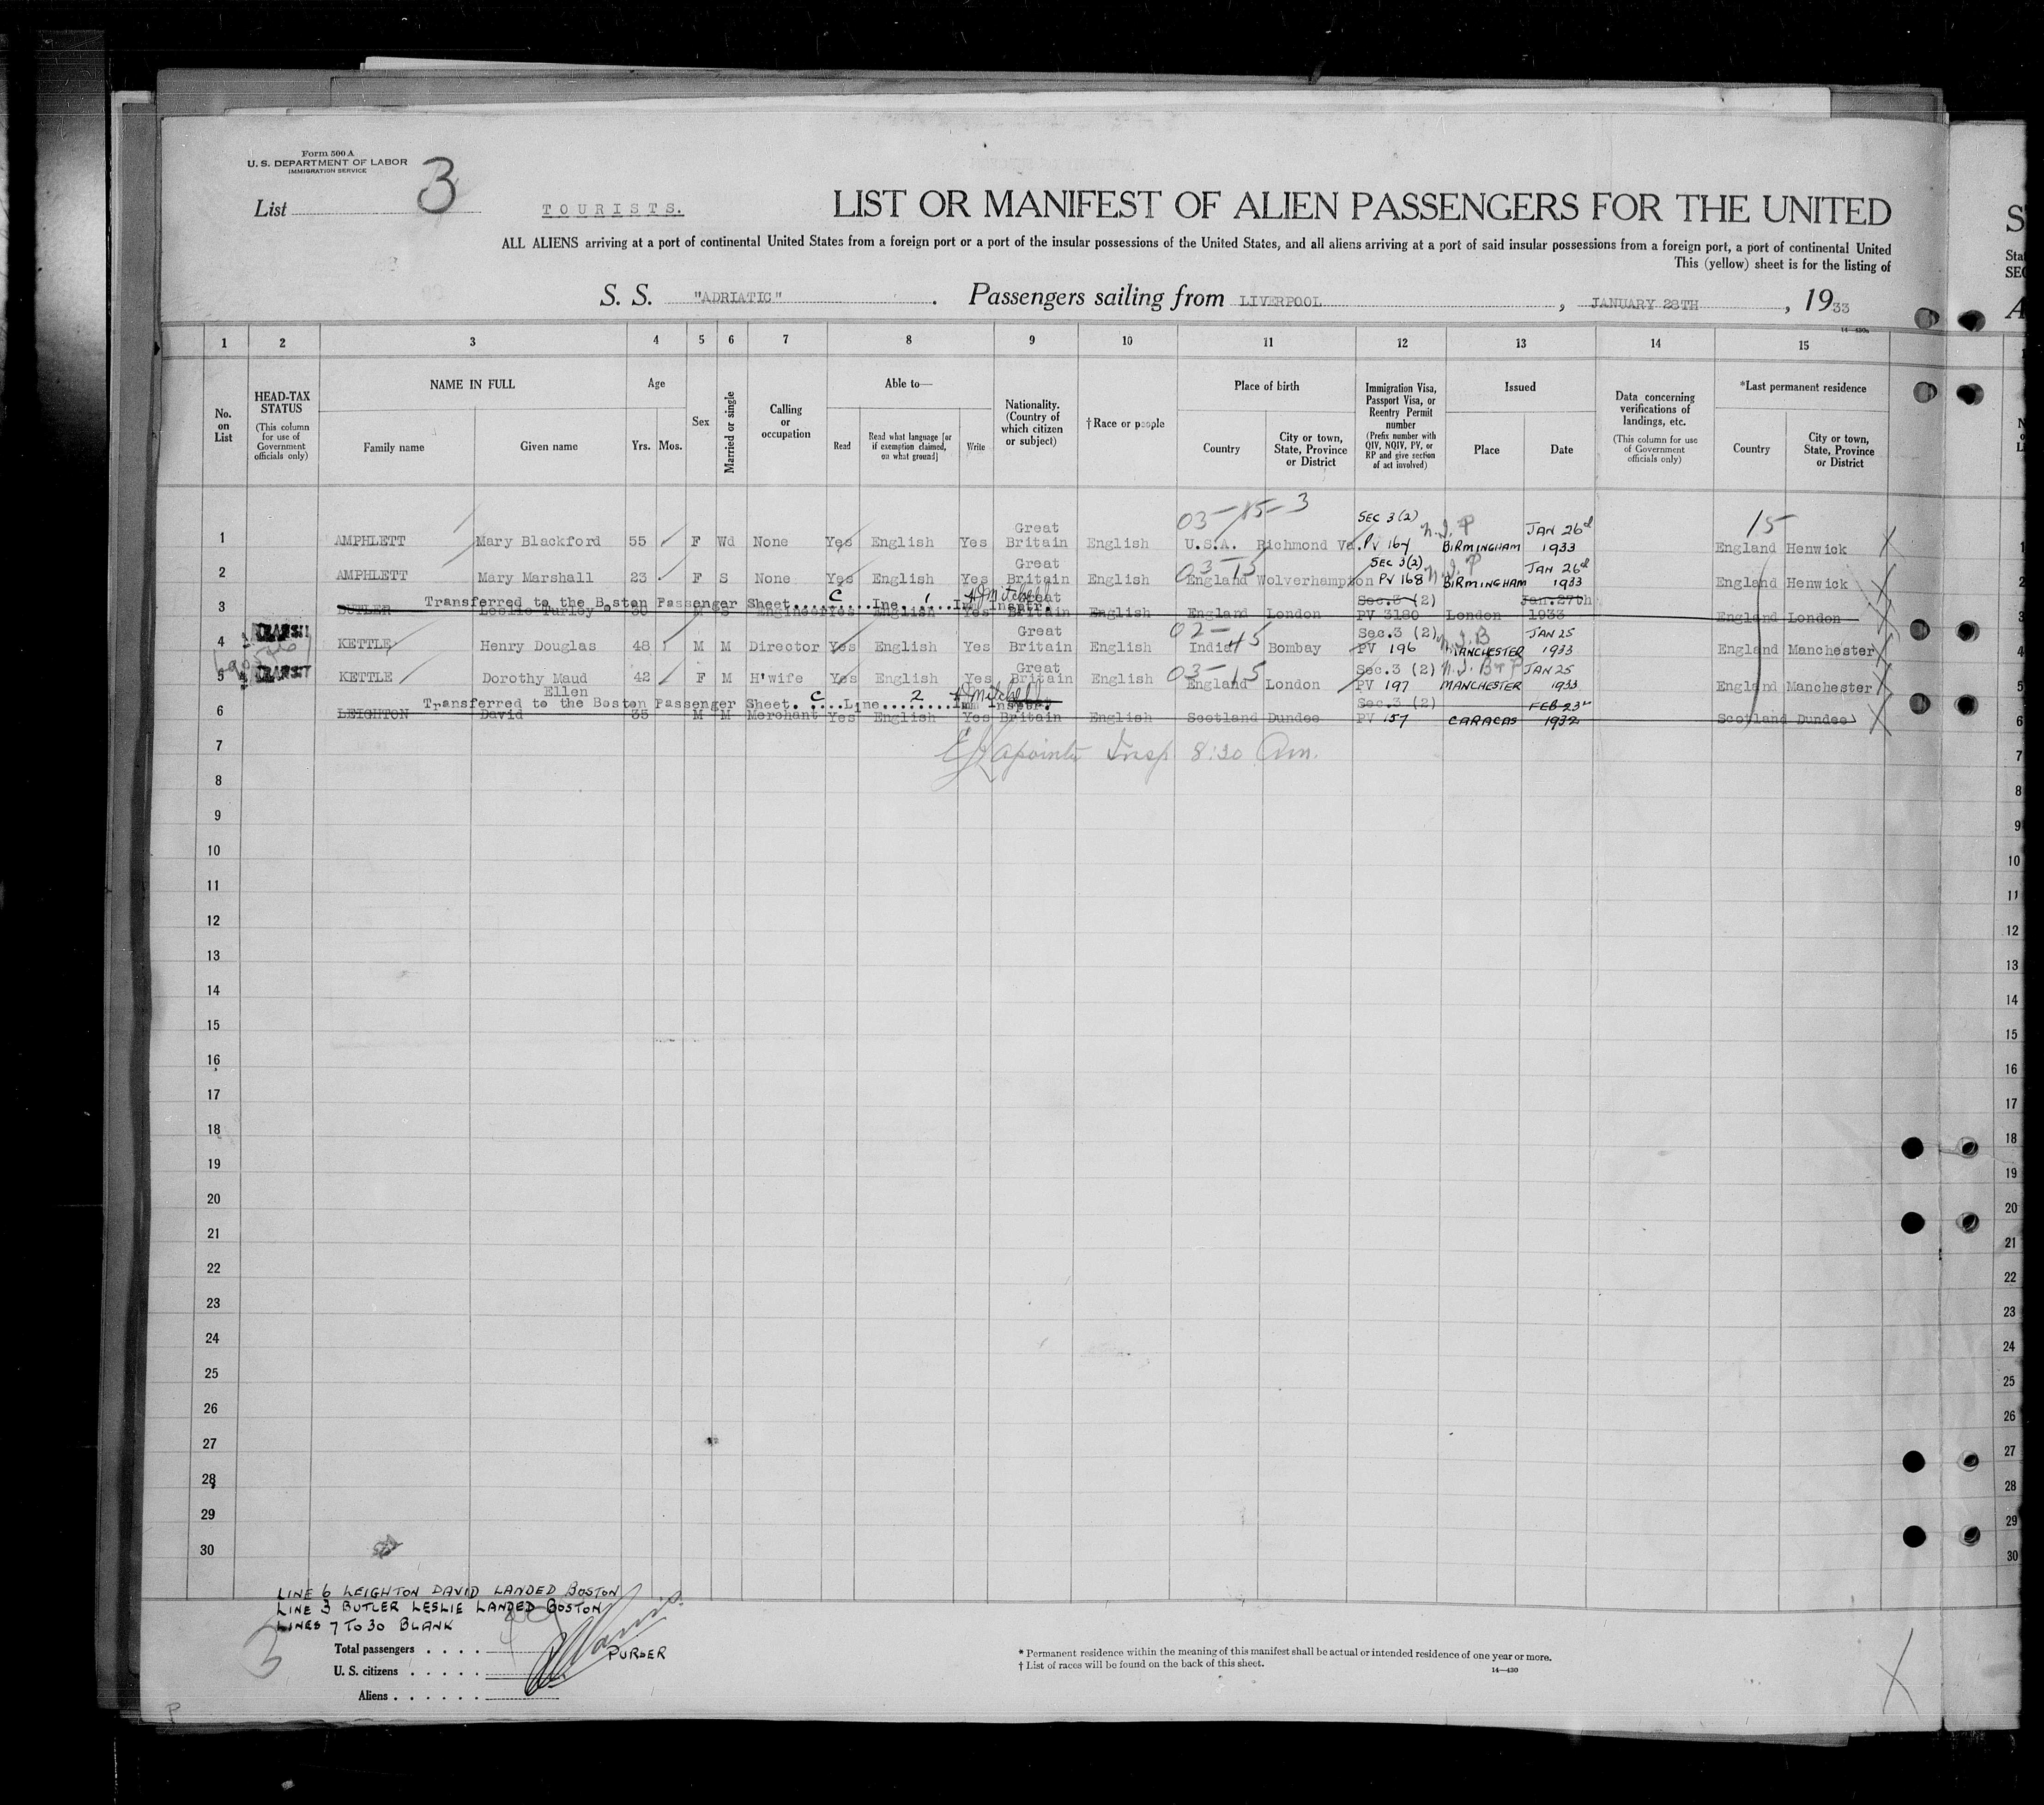 Form 500 A
U. S. DEPARTMENT OF LABOR
IMMIGRATION SERVICE
List 3
TOURISTS.
LIST OR MANIFEST OF ALIEN PASSENGERS FOR THE UNITED
ALL ALIENS arriving at a port of continental United States from a foreign port or a port of the insular possessions of the United States, and all aliens arriving at a port of said insular possessions from a foreign port, a port of continental United
This (yellow) sheet is for the listing of
S. S. "ADRIATIC" . Passengers sailing from LIVERPOOL , JANUARY 28TH , 1933
14—430a
1 2 3 4 5 6 7 8 9 10 11 12 13 14 15
No. on List
HEAD-TAX STATUS
(This column for use of Government officials only)
NAME IN FULL
Family name Given name
Age
Yrs. Mos.
Sex
Married or single
Calling or occupation
Able to—
Read
Read what language [or if exemption claimed, on what ground]
Write
Nationality. (Country of which citizen or subject)
† Race or people
Place of birth
Country
City or town, State, Province or District
Immigration Visa, Passport Visa, or Reentry Permit number
(Prefix number with QIV, NQIV, PV, or RP and give section of act involved)
Issued
Place Date
Data concerning verifications of landings, etc.
(This column for use of Government officials only)
*Last permanent residence
Country
City or town, State, Province or District
03-15-3 SEC 3(2) 15
1 AMPHLETT Mary Blackford 55 F Wd None Yes English Yes Great Britain English U.S.A. Richmond Va. PV 167 BIRMINGHAM JAN 26d 1933 England Henwick
03-15 SEC 3(2)
2 AMPHLETT Mary Marshall 23 F S None Yes English Yes Great Britain English England Wolverhampton PV 168 BIRMINGHAM JAN 26d 1933 England Henwick
Transferred to the Boston Passenger Sheet C Ine 1 Im Insptr. Mitchell
3 BUTLER Leslie 30 M S Engineer Yes English Yes Great Britain English England London Sec.3 (2) PV 3180 London Jan.27th 1933 England London
02-45
4 TRANSIT KETTLE Henry Douglas 48 M M Director Yes English Yes Great Britain English India Bombay Sec.3 (2) PV 196 MANCHESTER JAN 25 1933 England Manchester
03-15
5 TRANSIT KETTLE Dorothy Maud Ellen 42 F M H'wife Yes English Yes Great Britain English England London Sec.3 (2) PV 197 MANCHESTER JAN 25 1933 England Manchester
Transferred to the Boston Passenger Sheet C Line 2 Im Inspтr. Mitchell
6 LEIGHTON David 35 M M Merchant Yes English Yes Britain English Scotland Dundee Sec.3 (2) PV 157 CARACAS FEB 23 1932 Scotland Dundee
7 Lapointe Insp 8:30 Am.
8
9
10
11
12
13
14
15
16
17
18
19
20
21
22
23
24
25
26
27
28
29
30
LINE 6 LEIGHTON DAVID LANDED BOSTON
LINE 3 BUTLER LESLIE LANDED BOSTON
LINES 7 TO 30 BLANK
3
Total passengers
PURSER
U. S. citizens
Aliens
* Permanent residence within the meaning of this manifest shall be actual or intended residence of one year or more.
† List of races will be found on the back of this sheet.
14—430